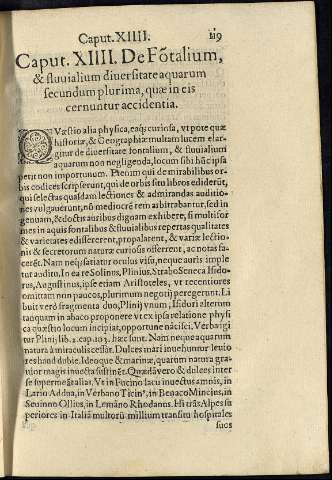 Caput. XIIII. 119
Caput. XIIII. De Fõtalium,
& fluuialium diuersitate aquarum
secundum plurima, quæ in eis
cernuntur accidentia.
QVæstio alia physica, eaq; curiosa, vt pote quæ
historiæ, & Geographiæ multam lucem elar-
gitur de diuersitate fontalium, & fluuialium
aquarum non negligenda, locum sibi hũc ipsa
petit non importunum. Etenim qui de mirabilibus or-
bis codices scripserunt, qui de orbis situ libros ediderũt,
qui selectas quasdam lectiones & admirandas auditio-
nes vulgauerunt, nõ mediocrem rem arbitrabãtur, sed in
genuam, & doctis auribus dignam exhibere, si multifor
mes in aquis fontalibus & fluuialibus repertas qualitates
& varietates edissererent, propalarent, & variæ lectio-
nis & secretorum naturæ curiosis offerrent, ac notas fa-
cerẽt. Nam neq; satiatur oculus visu, neque auris imple
tur auditu. In ea re Solinus, Plinius, Strabo Seneca Isido-
rus, Augustinus, ipse etiam Aristoteles, vt recentiores
omittam non paucos, plurimum negotij peregerunt. Li
buit verò fragmenta duo, Plinij vnum, Isidori alterum
taquam in abaco proponere vt ex ipsa relatione physi
ca quæstio locum incipiat, opportune nãcisci. Verba igi
tur Plinij lib. 2. cap. 103. hæc sunt. Nam neque aquarum
natura à miraculis cessãt. Dulces mari inuehuntur leuio
res haud dobie. Ideo quæ & marinæ, quarum natura gra
uior magis inuecta sustinẽt. Quædã vero & dulces inter
se supermeãt alias. Vt in Fucino lacu inuectus amnis, in
Lario Addua, in Verbano Ticin⁹, in Benaco Mincius, in
Seuinno Ollius, in Lemãno Rhodanus. Hi trãs Alpes su
periores in Italia multorũ millium transitu hospitales
suos